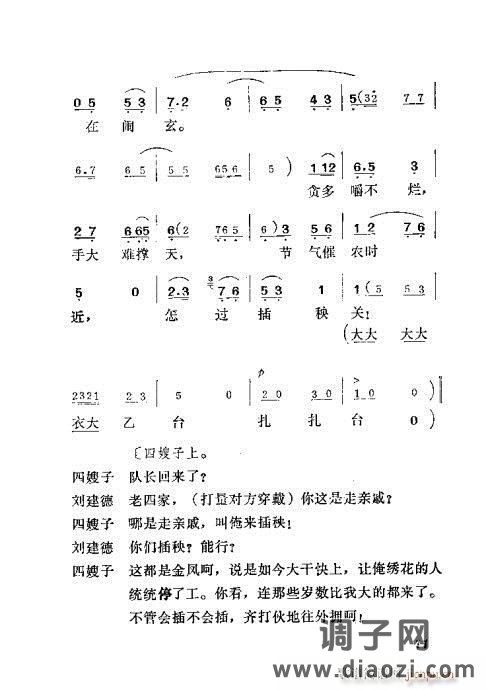 0 5 5 3 | 7·2 6 | 6 5 4 3 | 5 (32 7 7
在 闹 玄。
6·7 6 5 | 5 5 656 | 5 ) 112 | 6·5 3
贪多 嚼不 烂,
2 7 665 | 6 (2 765 | 6 ) 3 5 6 | 1 2 7 6
手大 难撑 天, 节 气催 农时
5 0 | 2·3 7 6 | 5 3 1 | 1 (5 5 3
近, 怎 过 插 秧 关!
(大大 大大
2321 2 3 | 5 0 | 2 0 3 0 | 1 0 0 )
衣大 乙 台 扎 扎 台 0 )
〔四嫂子上。
四嫂子 队长回来了?
刘建德 老四家,(打量对方穿戴)你这是走亲戚?
四嫂子 哪是走亲戚,叫俺来插秧!
刘建德 你们插秧?能行?
四嫂子 这都是金凤呵,说是如今大干快上,让俺绣花的人
统统停了工。你看,连那些岁数比我大的都来了。
不管会插不会插,齐打伙地往外拥呵!
调子网
www.diaozi.com